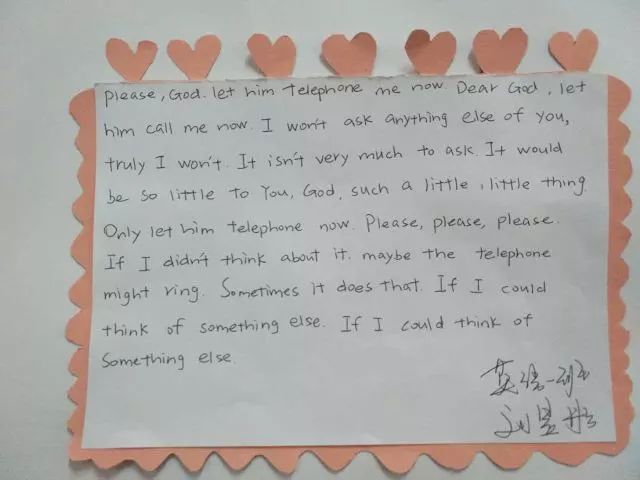 please, God. let him telephone me now. Dear God, let
him call me now. I won't ask anything else of you,
truly I won't. It isn't very much to ask. It would
be so little to You, God, such a little, little thing.
Only let him telephone now. Please, please, please.
If I didn't think about it. maybe the telephone
might ring. Sometimes it does that. If I could
think of something else. If I could think of
Something else.
英语一班
刘